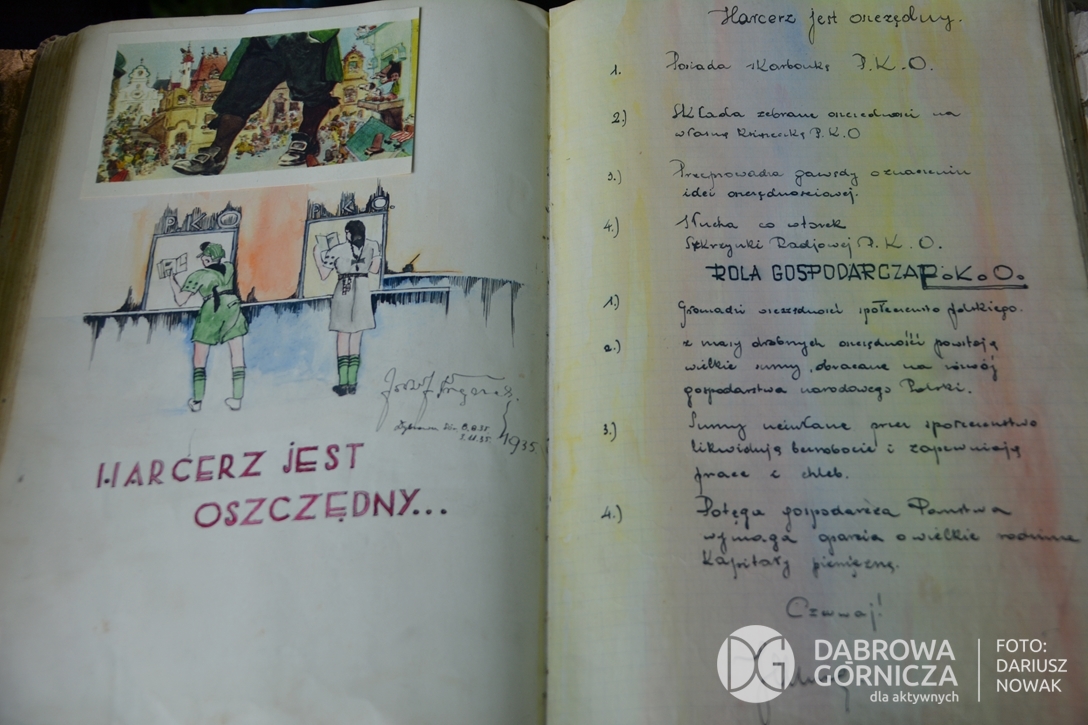 P.K.O
P.K.O.
1935
HARCERZ JEST
OSZCZĘDNY...
Harcerz jest oszczędny.
1. Posiada skarbonkę P.K.O.
2.) Składa zebrane oszczędności na
własną książeczkę P.K.O
3.) Przeprowadza gawędy o znaczeniu
idei oszczędnościowej.
4.) Słucha co wtorek
Skrzynki Radjowej P.K.O.
ROLA GOSPODARCZA P.K.O.
1.) Gromadzi oszczędności społeczeństwa polskiego.
2.) z masy drobnych oszczędności powstają
wielkie sumy, obracane na rozwój
gospodarstwa narodowego Polski.
3.) Sumy uciułane przez społeczeństwo
likwidują bezrobocie i zapewniają
pracę i chleb.
4.) Potęga gospodarcza Państwa
wymaga oparcia o wielkie rodzime
kapitały pieniężne.
Czuwaj!
DG
DĄBROWA
GÓRNICZA
dla aktywnych
FOTO:
DARIUSZ
NOWAK